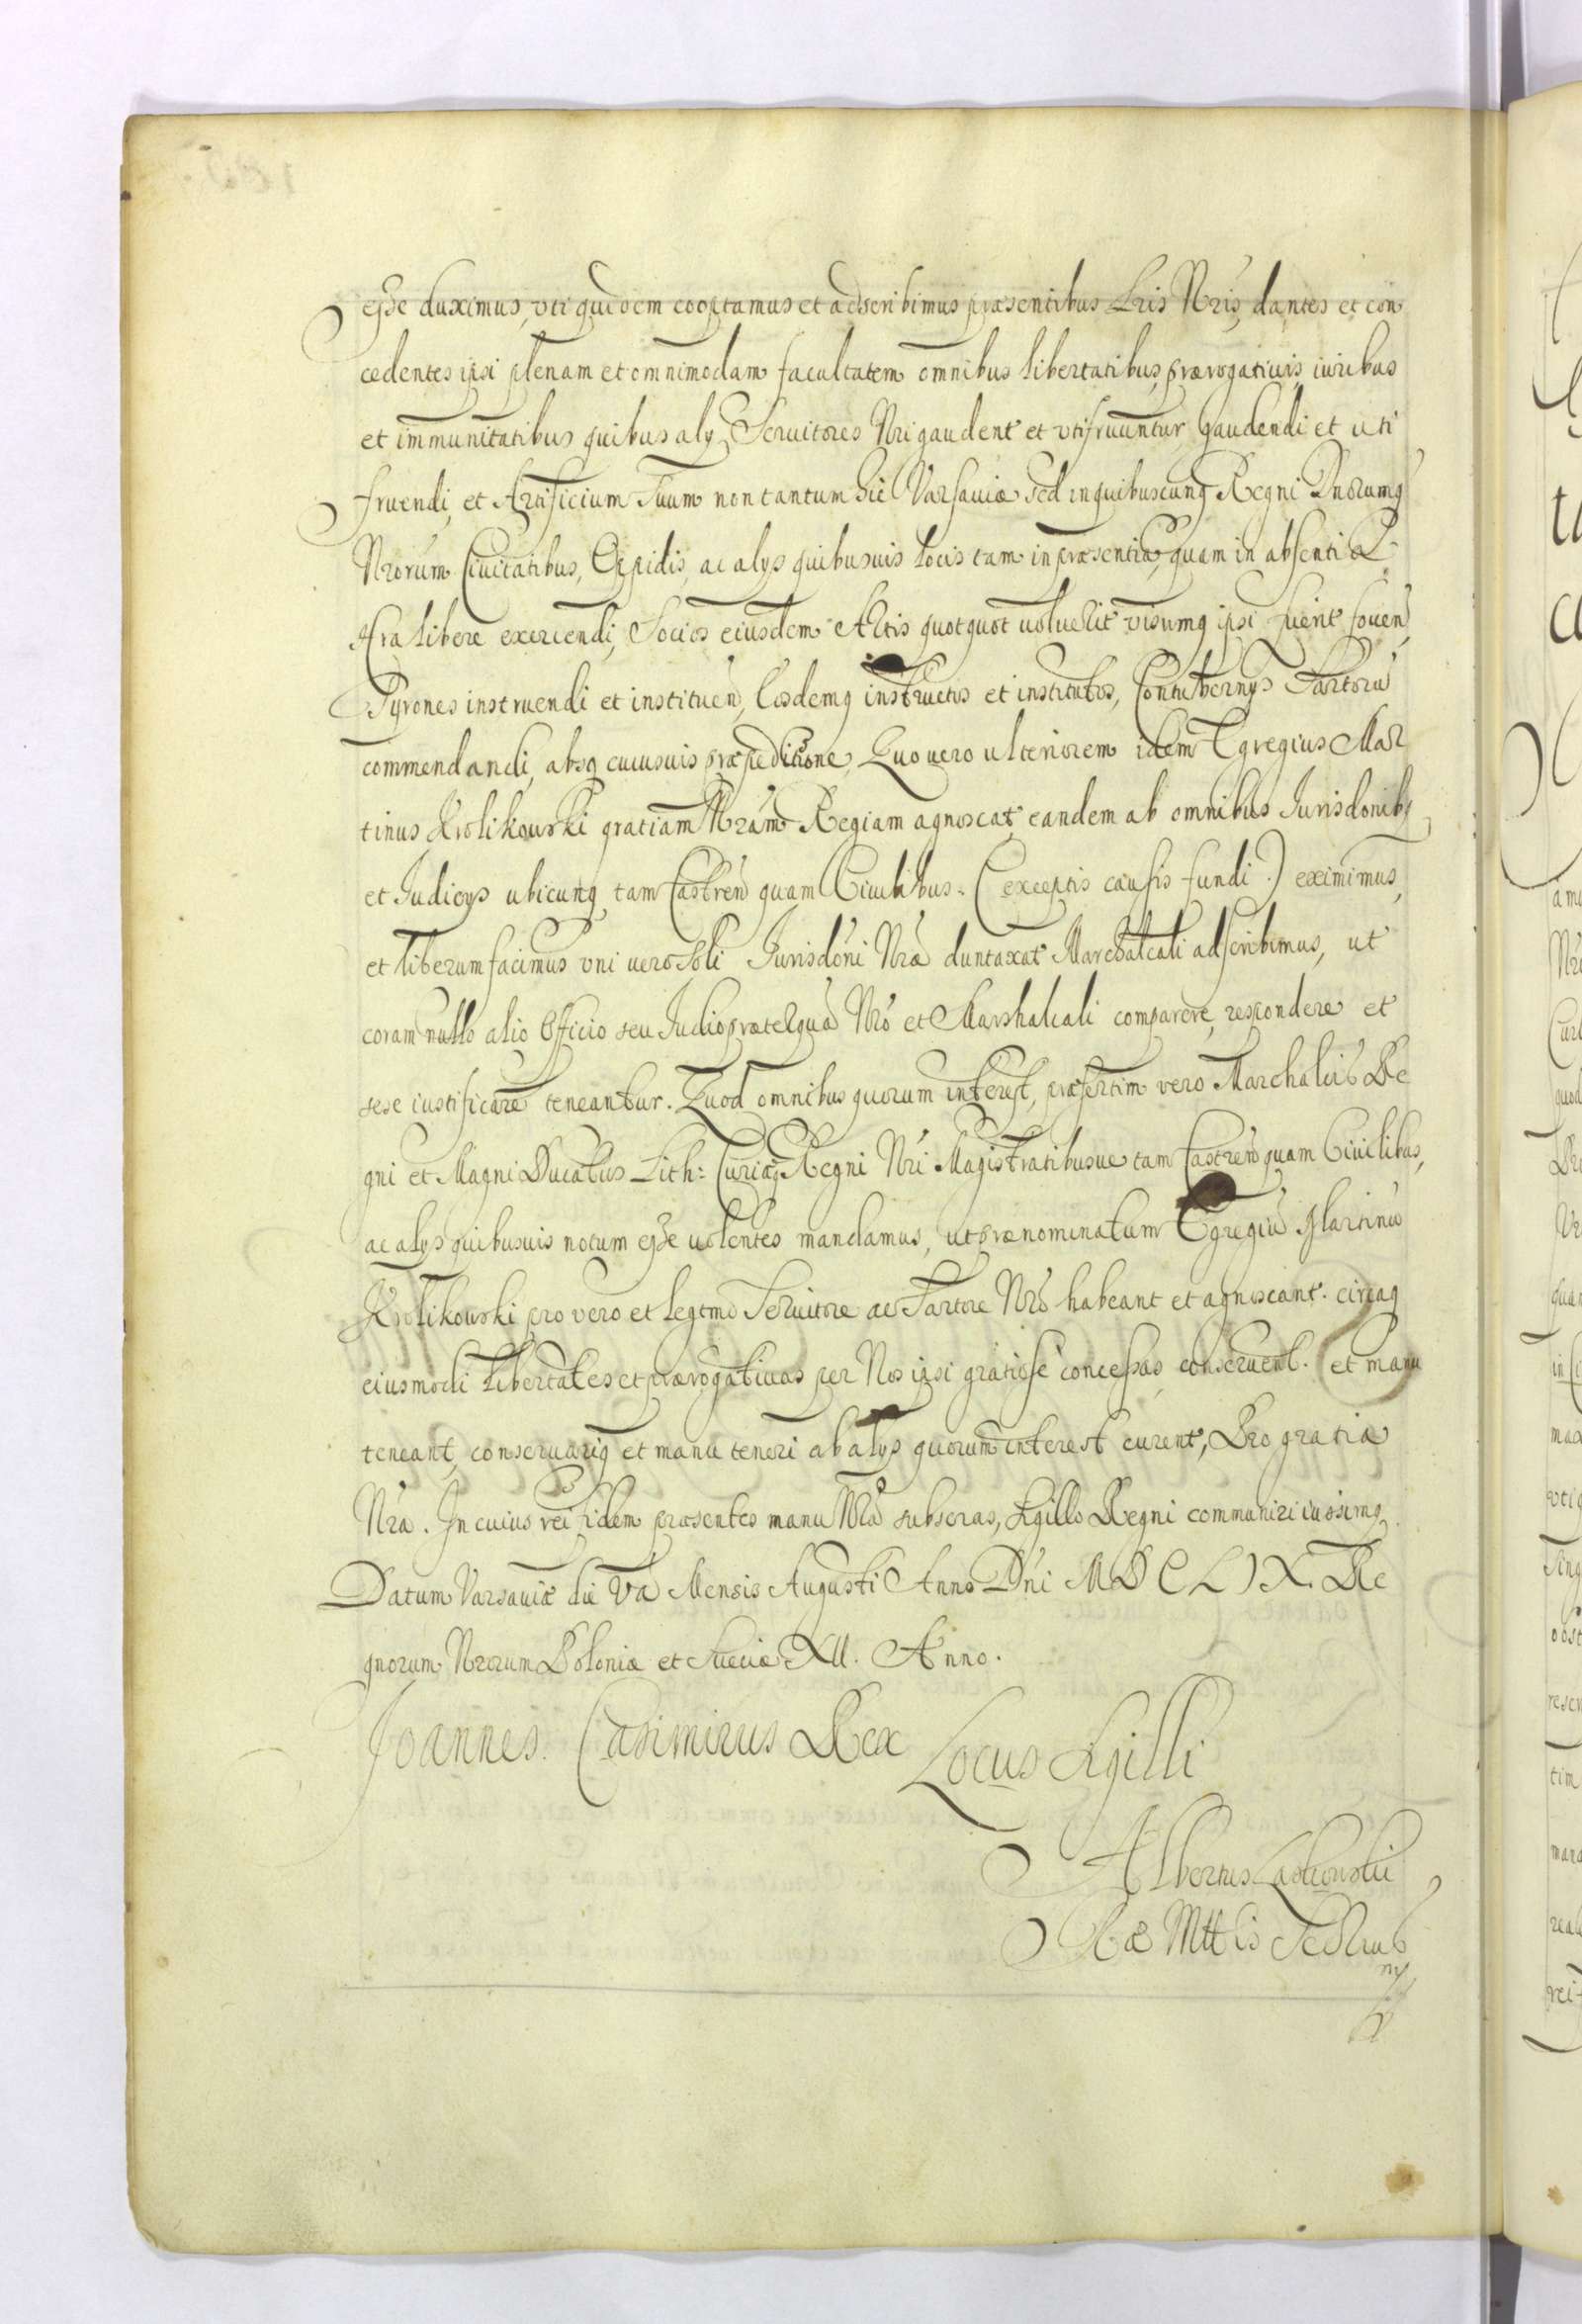 esse duximus, vti quidem cooptamus et adscribimus præsentibus Lris Nris, dantes et con
cedentes ipsi plenam et omnimodam facultatem omnibus libertatibus, prærogatiuis, iuribus
et immunitatibus quibus alÿ Seruitores Nri gaudent et vtifruuntur, gaudendi et uti
fruendi, et Artificium Suum non tantum hic Varsauiæ sed in quibuscunq Regni Dnorumq
Nrorum Ciuitatibus, Oppidis, ac alÿs quibusuis locis tam in præsentia, quam in absentia
Nra libere exercendi, Socios eiusdem Artis quotquot uoluerit visumq ipsi fuerit fouen,
Tyrones instruendi et instituen, Eosdemq instructos et institutos, Contubernÿs Sartorū
commendandi, absq cuiusuis præpeditione, Quo uero ulteriorem idem Egregius Mar
tinus Krolikowski gratiam Nram Regiam agnoscat, eandem ab omnibus Jurisdonibq
et Judicÿs ubicunq tam Castren quam Ciuilibus: (exceptis causis fundi.) eximimus,
et liberum facimus vni uero soli Jurisdoni Nræ duntaxat Marchalcali adscribimus, ut
coram nullo alio Officio seu Judio præterquā Nro et Marshalcali comparere, respondere et
sese iustificare teneantur. Quod omnibus quorum interest, præsertim vero Marchalcis Re
gni et Magni Ducatus Lith: Curiæq Regni Nri Magistratibusue tam Castren quam Ciuilibus,
ac alÿs quibusuis notum esse uolentes mandamus, ut prænominatum Egregiū Martinū
Krolikowski pro vero et legtmo Seruitore ac Sartore Nro habeant et agnoscant. circaq
eiusmodi libertates et prærogatiuas per Nos ipsi gratiose concessas, conseruent. et manu
teneant, conseruariq et manu teneri ab alÿs quorum interest curent, Pro gratia
Nra. In cuius rei fidem præsentes manu Nra subscras, Sigillo Regni communiri iussimq.
Datum Varsauiæ die Va Mensis Augusti Anno Dni MDCLIX. Re
gnorum Nrorum Poloniæ et Sueciæ XII. Anno.
Joannes Casimirus Rex Locus Sigilli
Albertus
Ræ Mttis